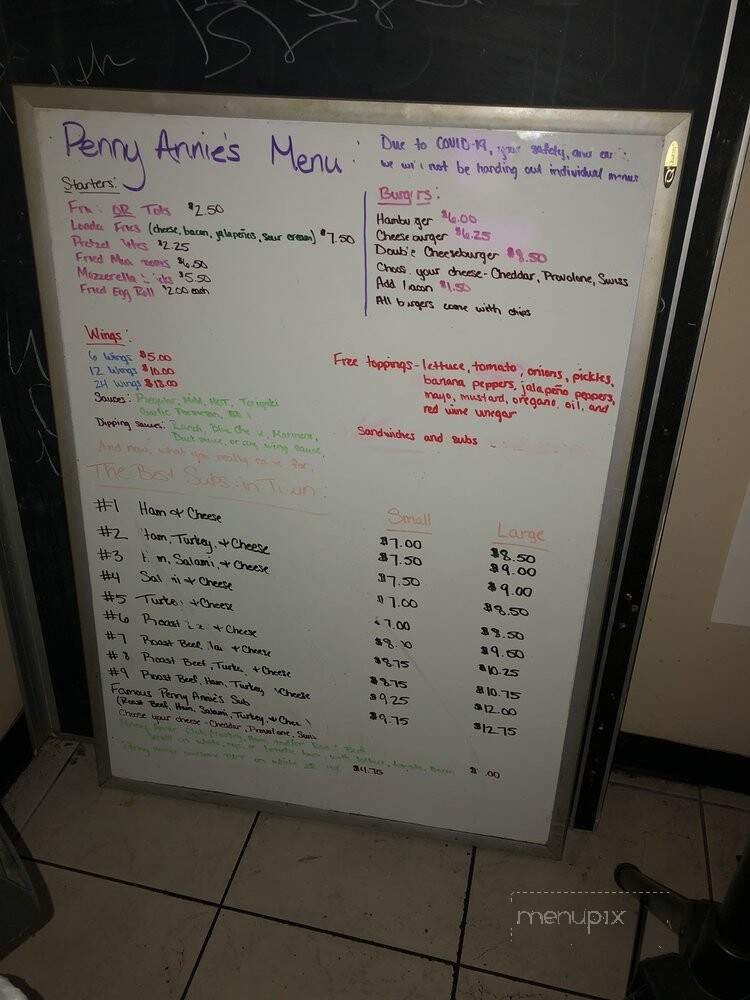 Penny Annie's Menu:
Due to COVID-19, your safety, and
we will not be handing out individual menus
Starters:
Fries OR Tots $2.50
Loaded Fries (cheese, bacon, jalapeños, sour cream) $7.50
Pretzel Bites $2.25
Fried Mushrooms $6.50
Mozzarella Sticks $5.50
Fried Egg Roll $2.00 each
Burgers:
Hamburger $6.00
Cheeseburger $6.25
Double Cheeseburger $8.50
Choose your cheese - Cheddar, Provolone, Swiss
Add bacon $1.50
All burgers come with chips
Wings:
6 Wings $5.00
12 Wings $10.00
24 Wings $18.00
Sauces: Regular, Mild, HOT, Teriyaki
Garlic Parmesan, BBQ
Dipping sauces: Ranch, Blue Cheese, Marinara,
Duck sauce, or any wing sauce
Free toppings - lettuce, tomato, onions, pickles,
banana peppers, jalapeño peppers,
mayo, mustard, oregano, oil, and
red wine vinegar
Sandwiches and subs
And now, what you really came for,
The Best Subs in Town:
Small Large
#1 Ham & Cheese $7.00 $8.50
#2 Ham, Turkey, & Cheese $7.50 $9.00
#3 Ham, Salami, & Cheese $7.50 $9.00
#4 Salami & Cheese $7.00 $8.50
#5 Turkey & Cheese $7.00 $8.50
#6 Roast Beef & Cheese $9.50
#7 Roast Beef, Ham & Cheese $8.75 $10.25
#8 Roast Beef, Turkey & Cheese $8.75 $10.75
#9 Roast Beef, Ham, Turkey & Cheese $9.25 $12.00
Famous Penny Annie's Sub $9.75 $12.75
(Roast Beef, Ham, Salami, Turkey, & Cheese)
Choose your cheese - Cheddar, Provolone, Swiss
lettuce, tomato, bacon
$4.75
menupix